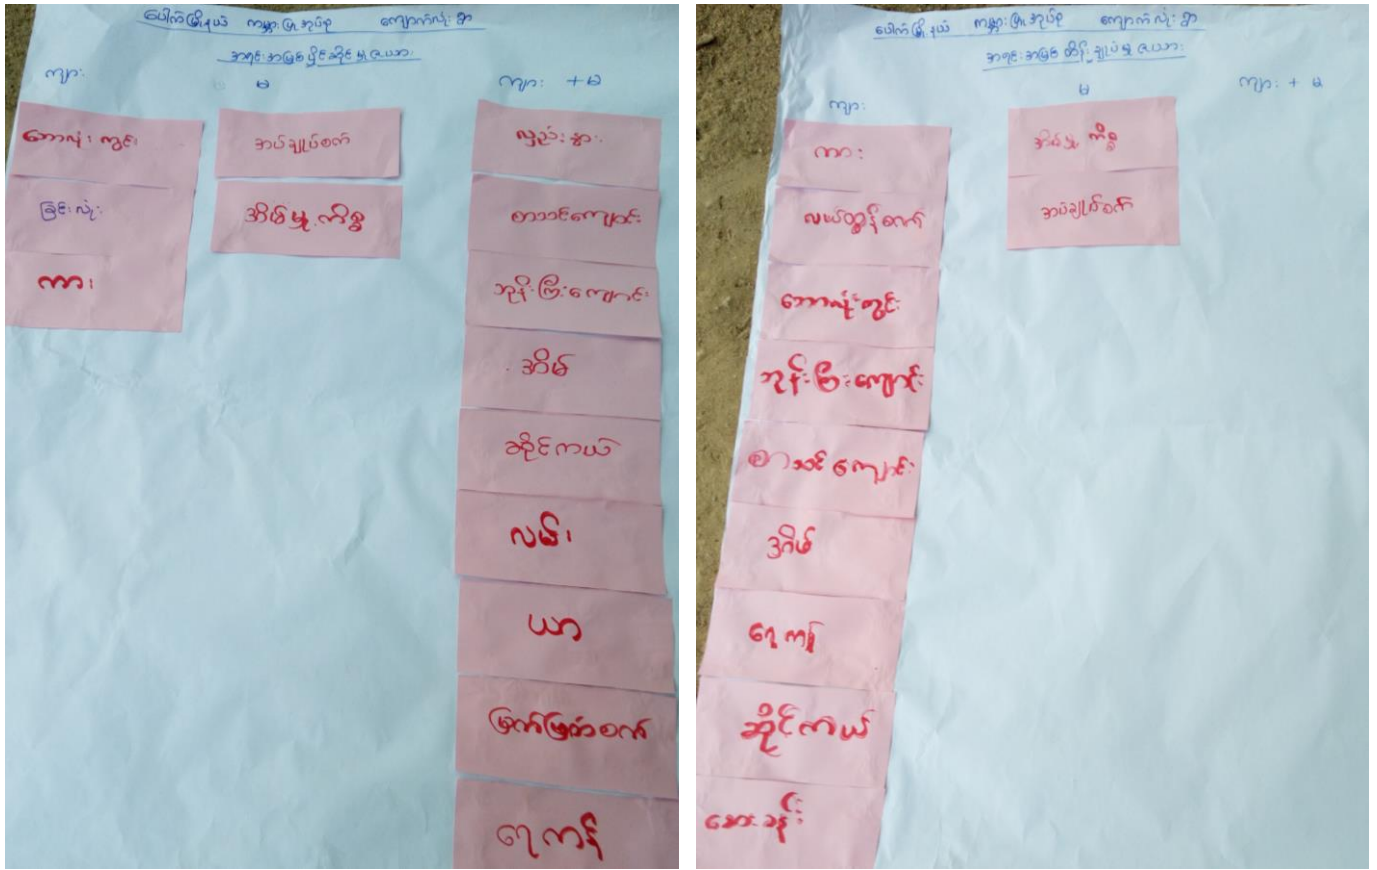 ပေါက်မြို့နယ် ကမ္မားဖြူအုပ်စု ကျောက်လုံးရွာ
အရင်းအမြစ်ပိုင်ဆိုင်မှုဇယား
ကျား
မ
ကျား + မ
ဘောလုံးကွင်း
ခြင်းလုံး
ကား
အပ်ချုပ်စက်
အိမ်မှုကိစ္စ
လှည်းနွား
စာသင်ကျောင်း
ဘုန်းကြီးကျောင်း
အိမ်
ဆိုင်ကယ်
လမ်း
ယာ
မြက်ဖြတ်စက်
ရေကန်
ပေါက်မြို့နယ် ကမ္မားဖြူအုပ်စု ကျောက်လုံးရွာ
အရင်းအမြစ်ထိန်းချုပ်မှုဇယား
ကျား
မ
ကျား + မ
ကား
လယ်ထွန်စက်
ဘောလုံးကွင်း
ဘုန်းကြီးကျောင်း
စာသင်ကျောင်း
အိမ်
ရေကန်
ဆိုင်ကယ်
ဆေးခန်း
အိမ်မှုကိစ္စ
အပ်ချုပ်စက်